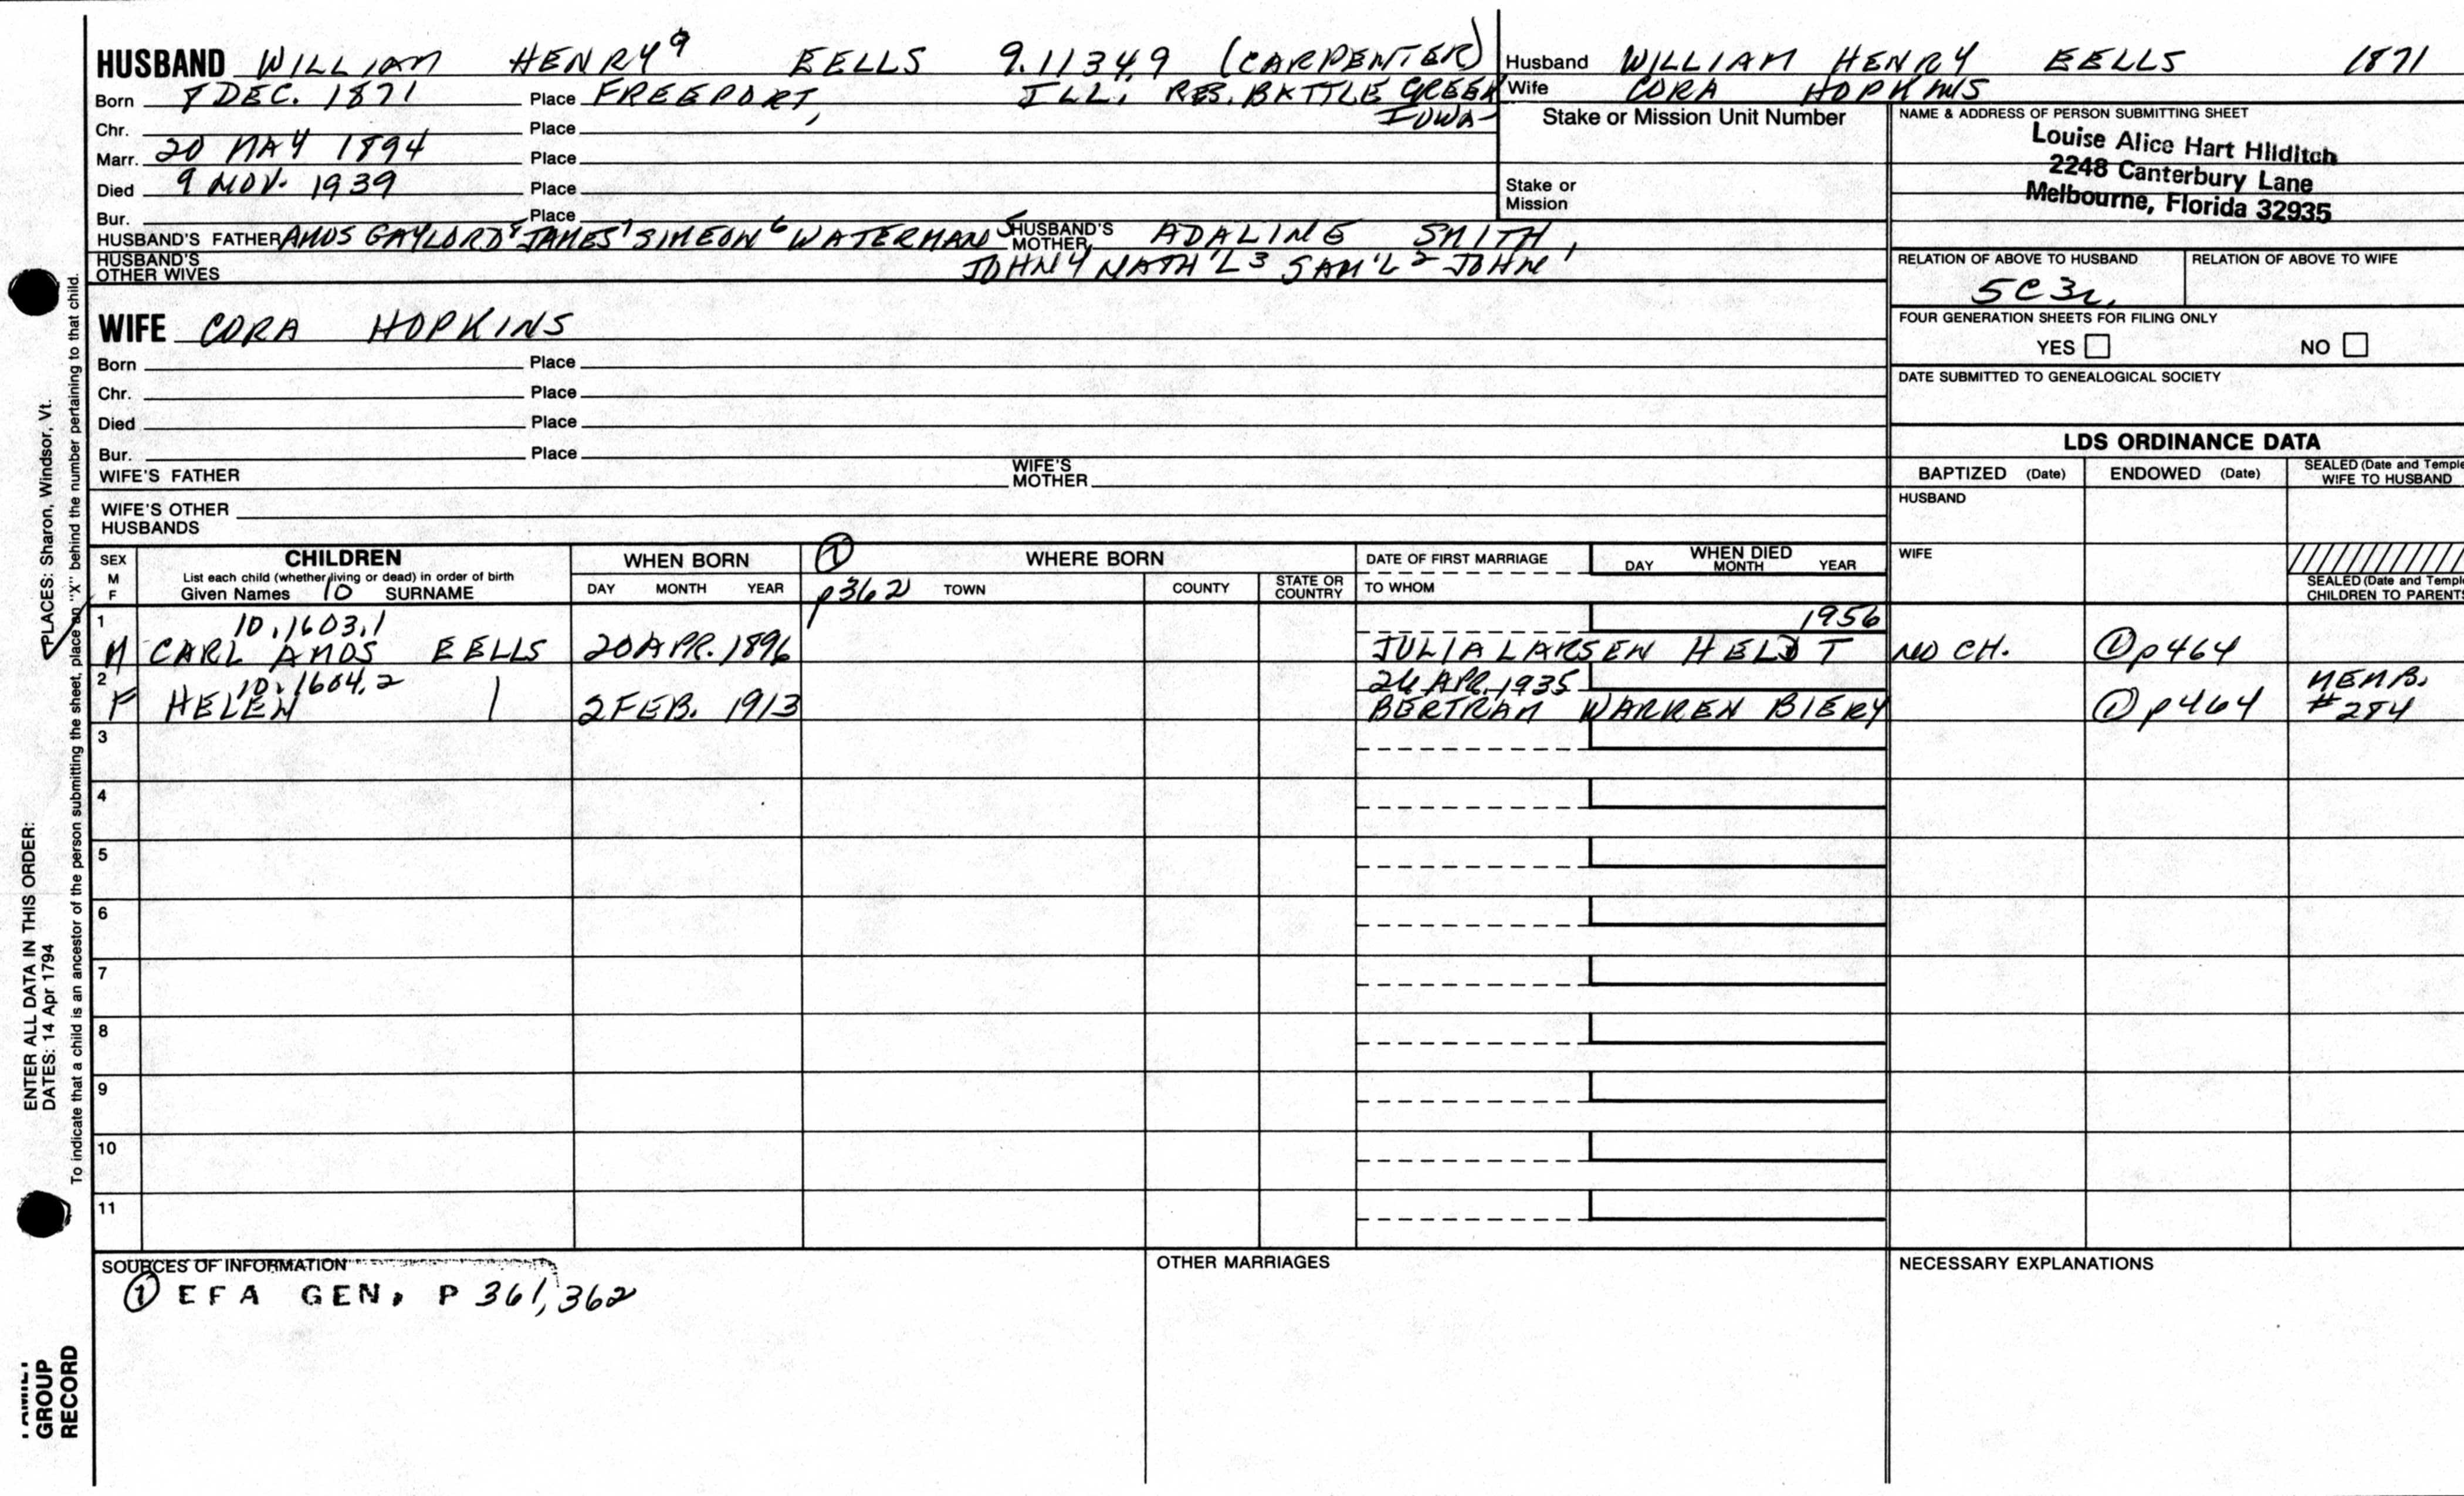 HUSBAND WILLIAM HENRY⁹ EELLS 9.1134,9 (CARPENTER)
Born 8 DEC. 1871 Place FREEPORT, ILL. RES. BATTLE CREEK
IOWA
Chr. Place
Marr. 20 MAY 1894 Place
Died 9 NOV. 1939 Place
Bur. Place
HUSBAND'S FATHER AMOS GAYLORD⁸ JAMES⁷ SIMEON⁶ WATERMAN⁵ HUSBAND'S MOTHER ADALINE SMITH,
HUSBAND'S OTHER WIVES JOHN⁴ NATH'L³ SAM'L² JOHN¹
Husband WILLIAM HENRY EELLS 1871
Wife CORA HOPKINS
Stake or Mission Unit Number
Stake or
Mission
NAME & ADDRESS OF PERSON SUBMITTING SHEET
Louise Alice Hart Hilditch
2248 Canterbury Lane
Melbourne, Florida 32935
RELATION OF ABOVE TO HUSBAND RELATION OF ABOVE TO WIFE
5C3r.
FOUR GENERATION SHEETS FOR FILING ONLY
YES NO
DATE SUBMITTED TO GENEALOGICAL SOCIETY
WIFE CORA HOPKINS
Born Place
Chr. Place
Died Place
Bur. Place
WIFE'S FATHER WIFE'S MOTHER
WIFE'S OTHER
HUSBANDS
LDS ORDINANCE DATA
BAPTIZED (Date) ENDOWED (Date) SEALED (Date and Temple
WIFE TO HUSBAND
HUSBAND
WIFE
SEALED (Date and Temple
CHILDREN TO PARENTS
SEX
M
F
CHILDREN
List each child (whether living or dead) in order of birth
Given Names 10 SURNAME
WHEN BORN
DAY MONTH YEAR
① WHERE BORN
p362 TOWN COUNTY STATE OR COUNTRY
DATE OF FIRST MARRIAGE
TO WHOM
WHEN DIED
DAY MONTH YEAR
1 10.1603,1 1956
M CARL AMOS EELLS 20 APR. 1896 JULIA LARSEN HELDT NO CH. ① p464
2 10.1604,2 26 APR. 1935 MEMB.
F HELEN | 2 FEB. 1913 BERTRAM WARREN BIERY ① p464 #284
3
4
5
6
7
8
9
10
11
SOURCES OF INFORMATION
① EFA GEN. P 361, 362
OTHER MARRIAGES
NECESSARY EXPLANATIONS
ENTER ALL DATA IN THIS ORDER:
DATES: 14 Apr 1794
PLACES: Sharon, Windsor, Vt.
To indicate that a child is an ancestor of the person submitting the sheet, place an "X" behind the number pertaining to that child.
FAMILY
GROUP
RECORD